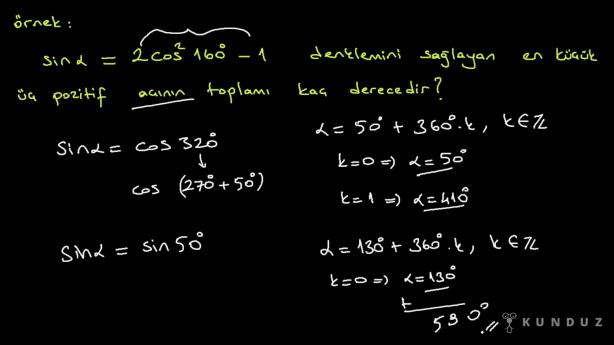 örnek:
sinα = 2cos² 160° - 1 denklemini sağlayan en küçük
üç pozitif açının toplamı kaç derecedir?
sinα = cos 320°
↓
cos (270° + 50°)
sinα = sin 50°
α = 50° + 360°.k, k∈ℤ
k=0 => α = 50°
k=1 => α = 410°
α = 130° + 360°.k, k∈ℤ
k=0 => α = 130°
+
590°
KUNDUZ